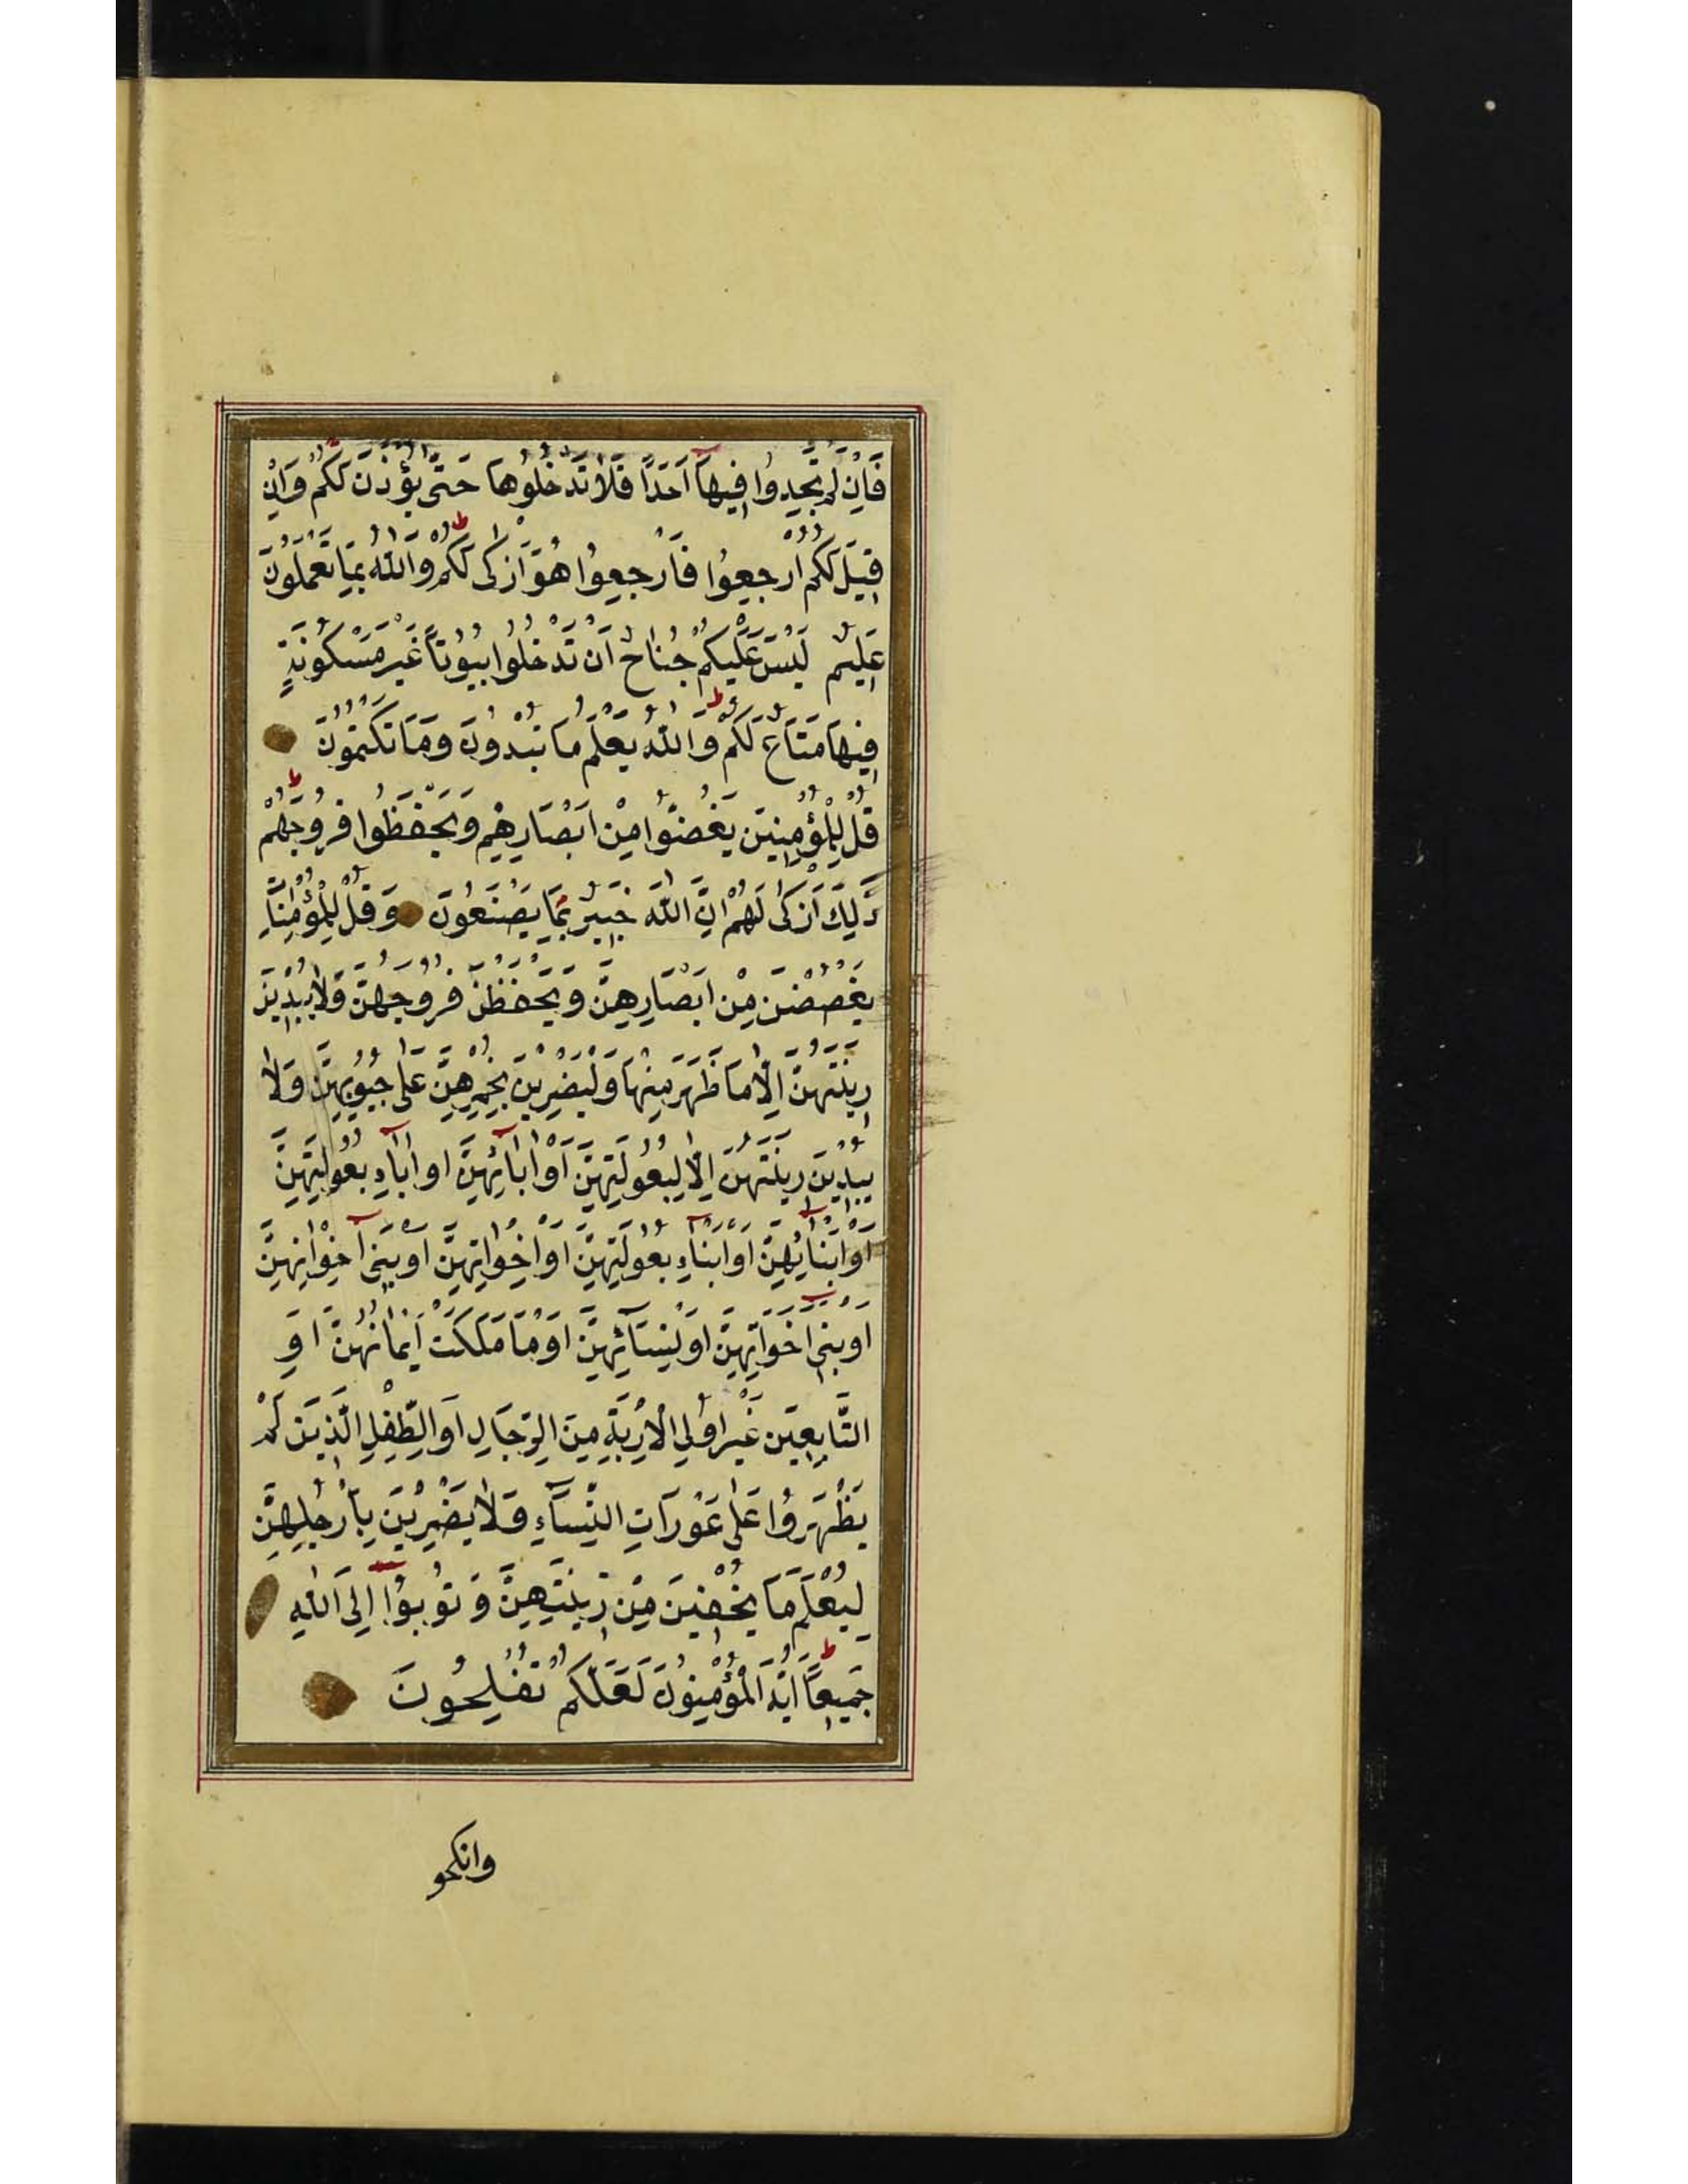 فَاِنْ لَمْ تَجِدُوا فِيهَآ اَحَدًا فَلَا تَدْخُلُوهَا حَتّٰى يُؤْذَنَ لَكُمْ وَاِنْ
قِيلَ لَكُمُ ارْجِعُوا فَارْجِعُوا هُوَ اَزْكٰى لَكُمْ وَاللّٰهُ بِمَا تَعْمَلُونَ
عَلِيمٌ لَيْسَ عَلَيْكُمْ جُنَاحٌ اَنْ تَدْخُلُوا بُيُوتًا غَيْرَ مَسْكُونَةٍ
فِيهَا مَتَاعٌ لَكُمْ وَاللّٰهُ يَعْلَمُ مَا تُبْدُونَ وَمَا تَكْتُمُونَ
قُلْ لِلْمُؤْمِنِينَ يَغُضُّوا مِنْ اَبْصَارِهِمْ وَيَحْفَظُوا فُرُوجَهُمْ
ذٰلِكَ اَزْكٰى لَهُمْ اِنَّ اللّٰهَ خَبِيرٌ بِمَا يَصْنَعُونَ وَقُلْ لِلْمُؤْمِنَاتِ
يَغْضُضْنَ مِنْ اَبْصَارِهِنَّ وَيَحْفَظْنَ فُرُوجَهُنَّ وَلَا يُبْدِينَ
زِينَتَهُنَّ اِلَّا مَا ظَهَرَ مِنْهَا وَلْيَضْرِبْنَ بِخُمُرِهِنَّ عَلٰى جُيُوبِهِنَّ وَلَا
يُبْدِينَ زِينَتَهُنَّ اِلَّا لِبُعُولَتِهِنَّ اَوْ اٰبَآئِهِنَّ اَوْ اٰبَآءِ بُعُولَتِهِنَّ
اَوْ اَبْنَآئِهِنَّ اَوْ اَبْنَآءِ بُعُولَتِهِنَّ اَوْ اِخْوَانِهِنَّ اَوْ بَنِىٓ اِخْوَانِهِنَّ
اَوْ بَنِىٓ اَخَوَاتِهِنَّ اَوْ نِسَآئِهِنَّ اَوْ مَا مَلَكَتْ اَيْمَانُهُنَّ اَوِ
التَّابِعِينَ غَيْرِ اُولِي الْاِرْبَةِ مِنَ الرِّجَالِ اَوِ الطِّفْلِ الَّذِينَ لَمْ
يَظْهَرُوا عَلٰى عَوْرَاتِ النِّسَآءِ وَلَا يَضْرِبْنَ بِاَرْجُلِهِنَّ
لِيُعْلَمَ مَا يُخْفِينَ مِنْ زِينَتِهِنَّ وَتُوبُوٓا اِلَى اللّٰهِ
جَمِيعًا اَيُّهَ الْمُؤْمِنُونَ لَعَلَّكُمْ تُفْلِحُونَ
وانكحو